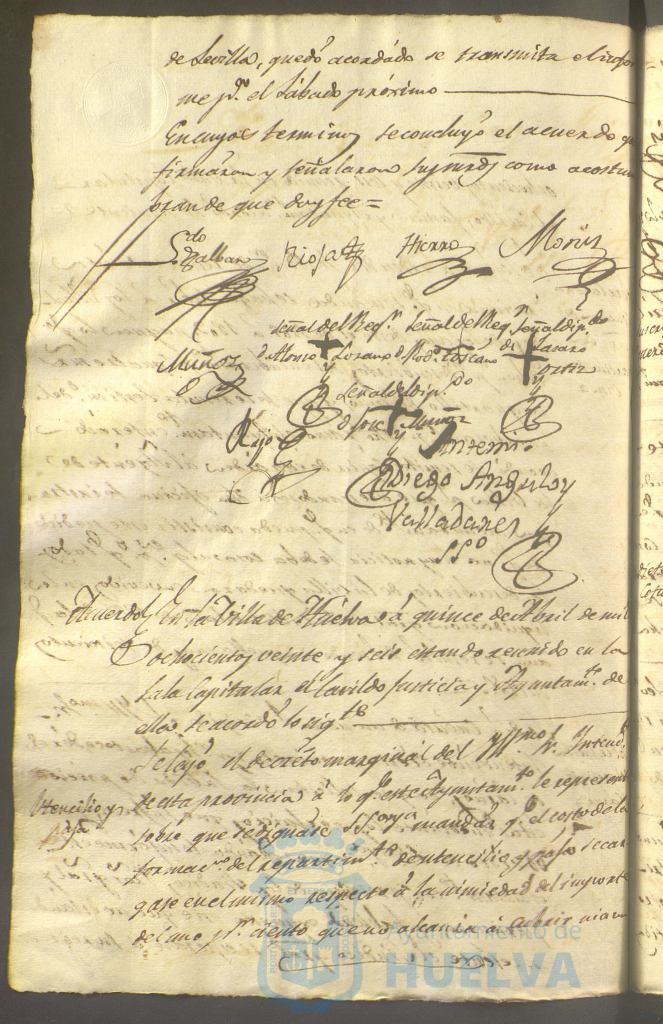 de Sevilla, quedó acordado se transmita el infor
me pr. el Sábado próximo
En cuyos terminos se concluyó el acuerdo q
firmaron y señalaron sus mrds como acostum
bran de que doy fee =
Hierro Morón
Muñoz
Señal del Regr. Señal del Regr. Señal dip.do
d. Alonso + Lozano d. Rod. Toscano di + Lazaro
Ortiz
Señal del dip.do
d. Jose + Muñoz
Rajo
Antemi
Diego Ángulo y
Valladares
SSº
Acuerdo En la Villa de Huelva á quince de Abril de mil
ochocientos veinte y seis estando reunido en la
Sala Capitular el Cavildo Justicia y Ayuntam.to de
ella se acordó lo sig.te
Se leyó el decreto marginal del Yllmo. Sr. Intend.
Utencilio y
paja
de esta provincia á lo q.e este Ayuntam.to le represent
sobre que se dignase mandar q.e el costo de la
formac.on del repartim.to de utencilio y paja se car
gase en el mismo respecto á la nimiedad del importe
del uno pr. ciento que no alcanza á cubrir
Ayuntamiento de
HUELVA